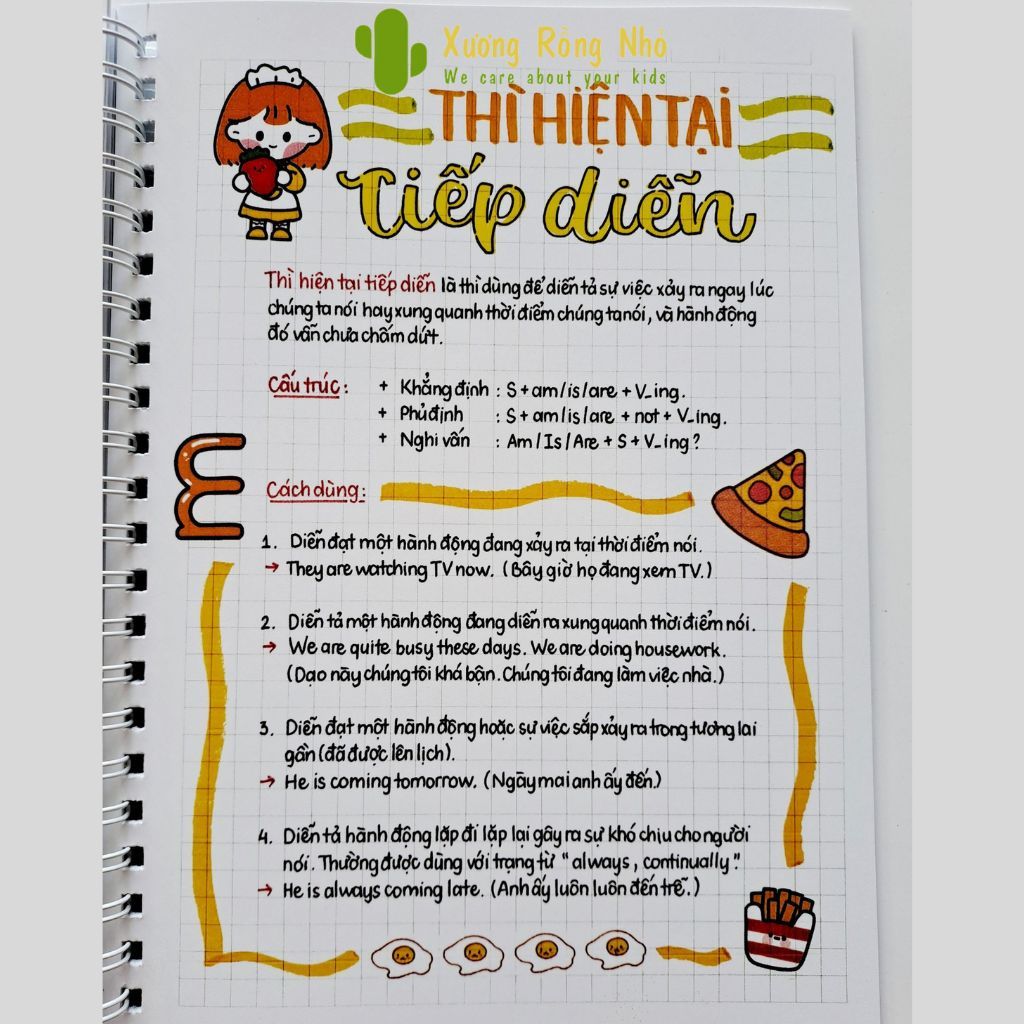 Xương Rồng Nhỏ
We care about your kids
THÌ HIỆN TẠI
Tiếp diễn
Thì hiện tại tiếp diễn là thì dùng để diễn tả sự việc xảy ra ngay lúc
chúng ta nói hay xung quanh thời điểm chúng ta nói, và hành động
đó vẫn chưa chấm dứt.
Cấu trúc: + Khẳng định : S + am/is/are + V_ing.
+ Phủ định : S + am/is/are + not + V_ing.
+ Nghi vấn : Am/Is/Are + S + V_ing?
Cách dùng:
1. Diễn đạt một hành động đang xảy ra tại thời điểm nói.
→ They are watching TV now. (Bây giờ họ đang xem TV.)
2. Diễn tả một hành động đang diễn ra xung quanh thời điểm nói.
→ We are quite busy these days. We are doing housework.
(Dạo này chúng tôi khá bận. Chúng tôi đang làm việc nhà.)
3. Diễn đạt một hành động hoặc sự việc sắp xảy ra trong tương lai
gần (đã được lên lịch).
→ He is coming tomorrow. (Ngày mai anh ấy đến.)
4. Diễn tả hành động lặp đi lặp lại gây ra sự khó chịu cho người
nói. Thường được dùng với trạng từ "always, continually".
→ He is always coming late. (Anh ấy luôn luôn đến trễ.)